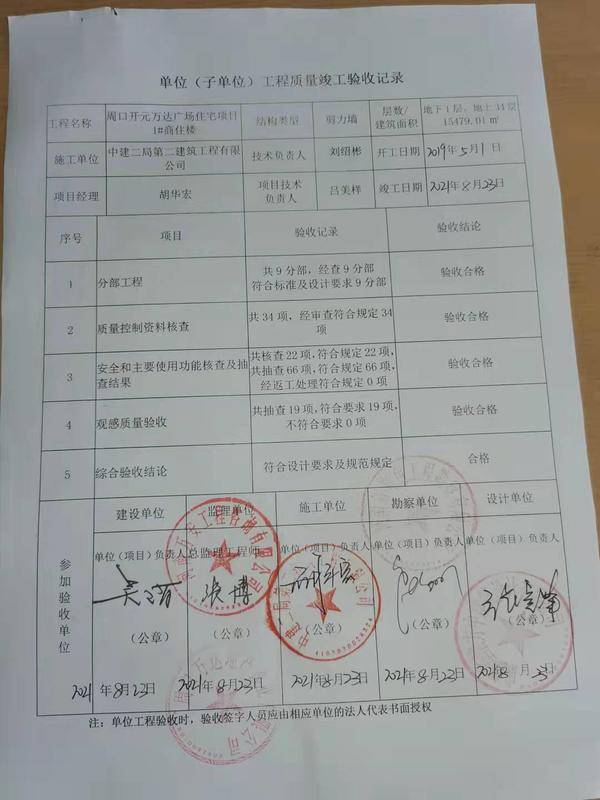 单位（子单位）工程质量竣工验收记录
工程名称 周口开元万达广场住宅项目1#商住楼 结构类型 剪力墙 层数/建筑面积 地下1层，地上34层 15479.01㎡
施工单位 中建二局第二建筑工程有限公司 技术负责人 刘绍彬 开工日期 2019年5月1日
项目经理 胡华宏 项目技术负责人 吕美样 竣工日期 2021年8月23日
序号 项目 验收记录 验收结论
1 分部工程 共9分部，经查9分部 符合标准及设计要求9分部 验收合格
2 质量控制资料核查 共34项，经审查符合规定34项 验收合格
3 安全和主要使用功能核查及抽查结果 共核查22项，符合规定22项，共抽查66项，符合规定66项，经返工处理符合规定0项 验收合格
4 观感质量验收 共抽查19项，符合要求19项，不符合要求0项 验收合格
5 综合验收结论 符合设计要求及规范规定 合格
参加验收单位
建设单位 监理单位 施工单位 勘察单位 设计单位
单位（项目）负责人 总监理工程师 单位（项目）负责人 单位（项目）负责人 单位（项目）负责人
（公章） （公章） （公章） （公章） （公章）
2021年8月23日 2021年8月23日 2021年8月23日 2021年8月23日 2021年8月23日
注：单位工程验收时，验收签字人员应由相应单位的法人代表书面授权